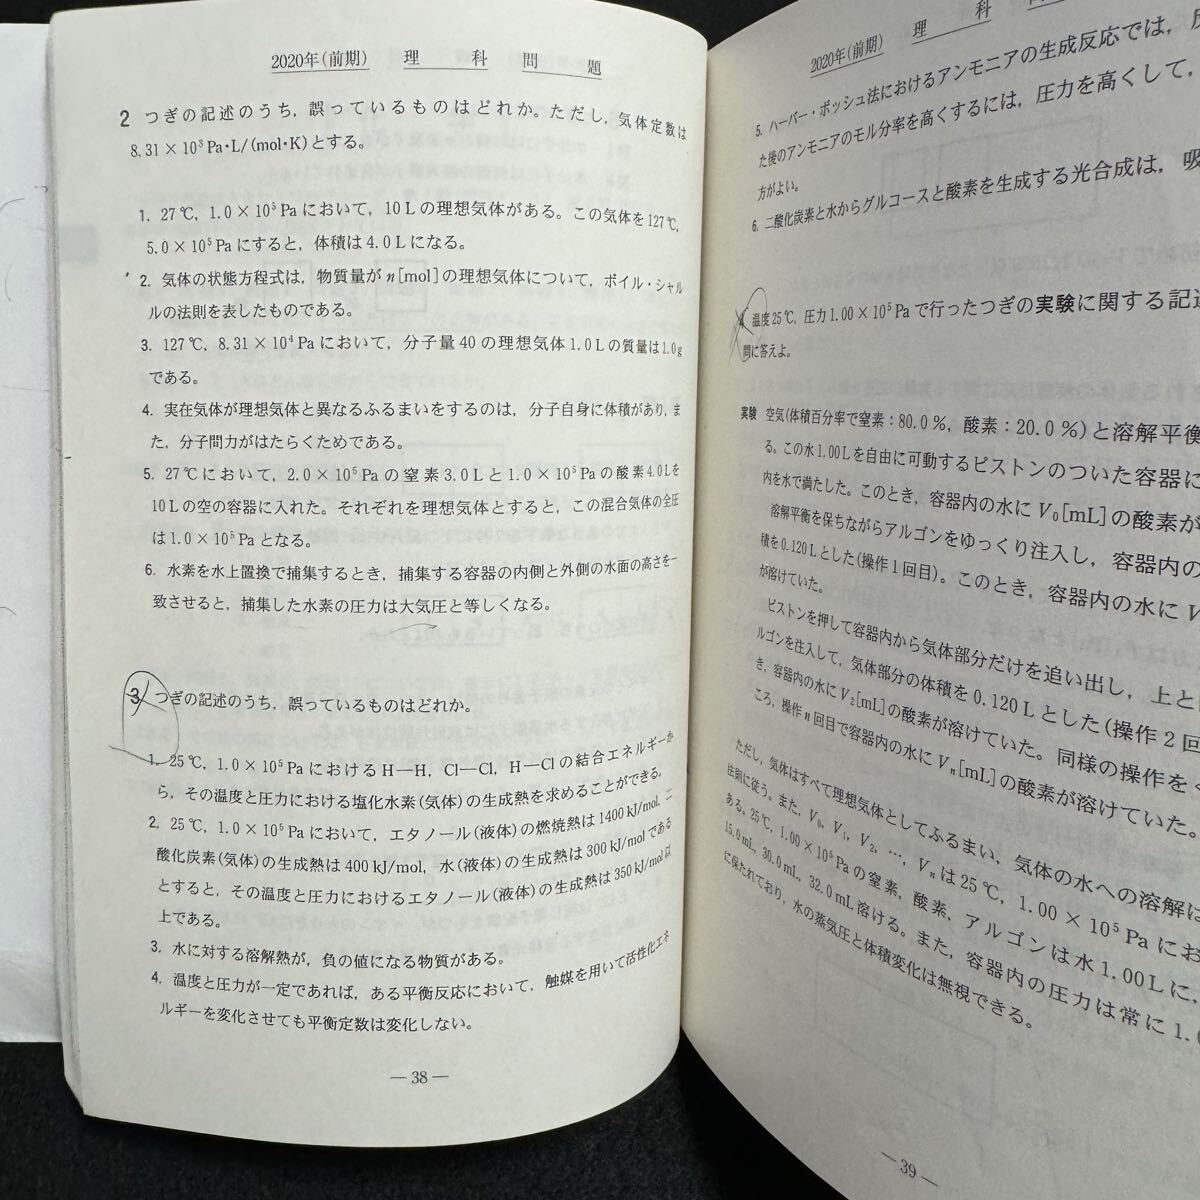 2020年(前期) 理科問題
2 つぎの記述のうち，誤っているものはどれか。ただし，気体定数は
8.31×10³Pa・L/(mol・K)とする。
1. 27℃，1.0×10⁵Paにおいて，10Lの理想気体がある。この気体を127℃，
5.0×10⁵Paにすると，体積は4.0Lになる。
2. 気体の状態方程式は，物質量がn[mol]の理想気体について，ボイル・シャル
ルの法則を表したものである。
3. 127℃，8.31×10⁴Paにおいて，分子量40の理想気体1.0Lの質量は1.0g
である。
4. 実在気体が理想気体と異なるふるまいをするのは，分子自身に体積があり，ま
た，分子間力がはたらくためである。
5. 27℃において，2.0×10⁵Paの窒素3.0Lと1.0×10⁵Paの酸素4.0Lを
10Lの空の容器に入れた。それぞれを理想気体とすると，この混合気体の全圧
は1.0×10⁵Paとなる。
6. 水素を水上置換で捕集するとき，捕集する容器の内側と外側の水面の高さを一
致させると，捕集した水素の圧力は大気圧と等しくなる。
3 つぎの記述のうち，誤っているものはどれか。
1. 25℃，1.0×10⁵PaにおけるH—H，Cl—Cl，H—Clの結合エネルギーか
ら，その温度と圧力における塩化水素(気体)の生成熱を求めることができる。
2. 25℃，1.0×10⁵Paにおいて，エタノール(液体)の燃焼熱は1400kJ/mol，二
酸化炭素(気体)の生成熱は400kJ/mol，水(液体)の生成熱は300kJ/molである
とすると，その温度と圧力におけるエタノール(液体)の生成熱は350kJ/mol以
上である。
3. 水に対する溶解熱が，負の値になる物質がある。
4. 温度と圧力が一定であれば，ある平衡反応において，触媒を用いて活性化エネ
ルギーを変化させても平衡定数は変化しない。
—38—
2020年(前期) 理科
5. ハーバー・ボッシュ法におけるアンモニアの生成反応では，
た後のアンモニアのモル分率を高くするには，圧力を高くして，
方がよい。
6. 二酸化炭素と水からグルコースと酸素を生成する光合成は，吸
4 温度25℃，圧力1.00×10⁵Paで行ったつぎの実験に関する記述
問に答えよ。
実験 空気(体積百分率で窒素：80.0％，酸素：20.0％)と溶解平衡
る。この水1.00Lを自由に可動するピストンのついた容器に
内を水で満たした。このとき，容器内の水にV₀[mL]の酸素が
溶解平衡を保ちながらアルゴンをゆっくり注入し，容器内の
積を0.120Lとした(操作1回目)。このとき，容器内の水にV
が溶けていた。
ピストンを押して容器内から気体部分だけを追い出し，上と
ルゴンを注入して，気体部分の体積を0.120Lとした(操作2回
き，容器内の水にV₂[mL]の酸素が溶けていた。同様の操作をく
ころ，操作n回目で容器内の水にVₙ[mL]の酸素が溶けていた。
ただし，気体はすべて理想気体としてふるまい，気体の水への溶解は
法則に従う。また，V₀，V₁，V₂，…，Vₙは25℃，1.00×10⁵Paにお
ある。25℃，1.00×10⁵Paの窒素，酸素，アルゴンは水1.00Lに，
15.0mL，30.0mL，32.0mL溶ける。また，容器内の圧力は常に1.0
に保たれており，水の蒸気圧と体積変化は無視できる。
—39—